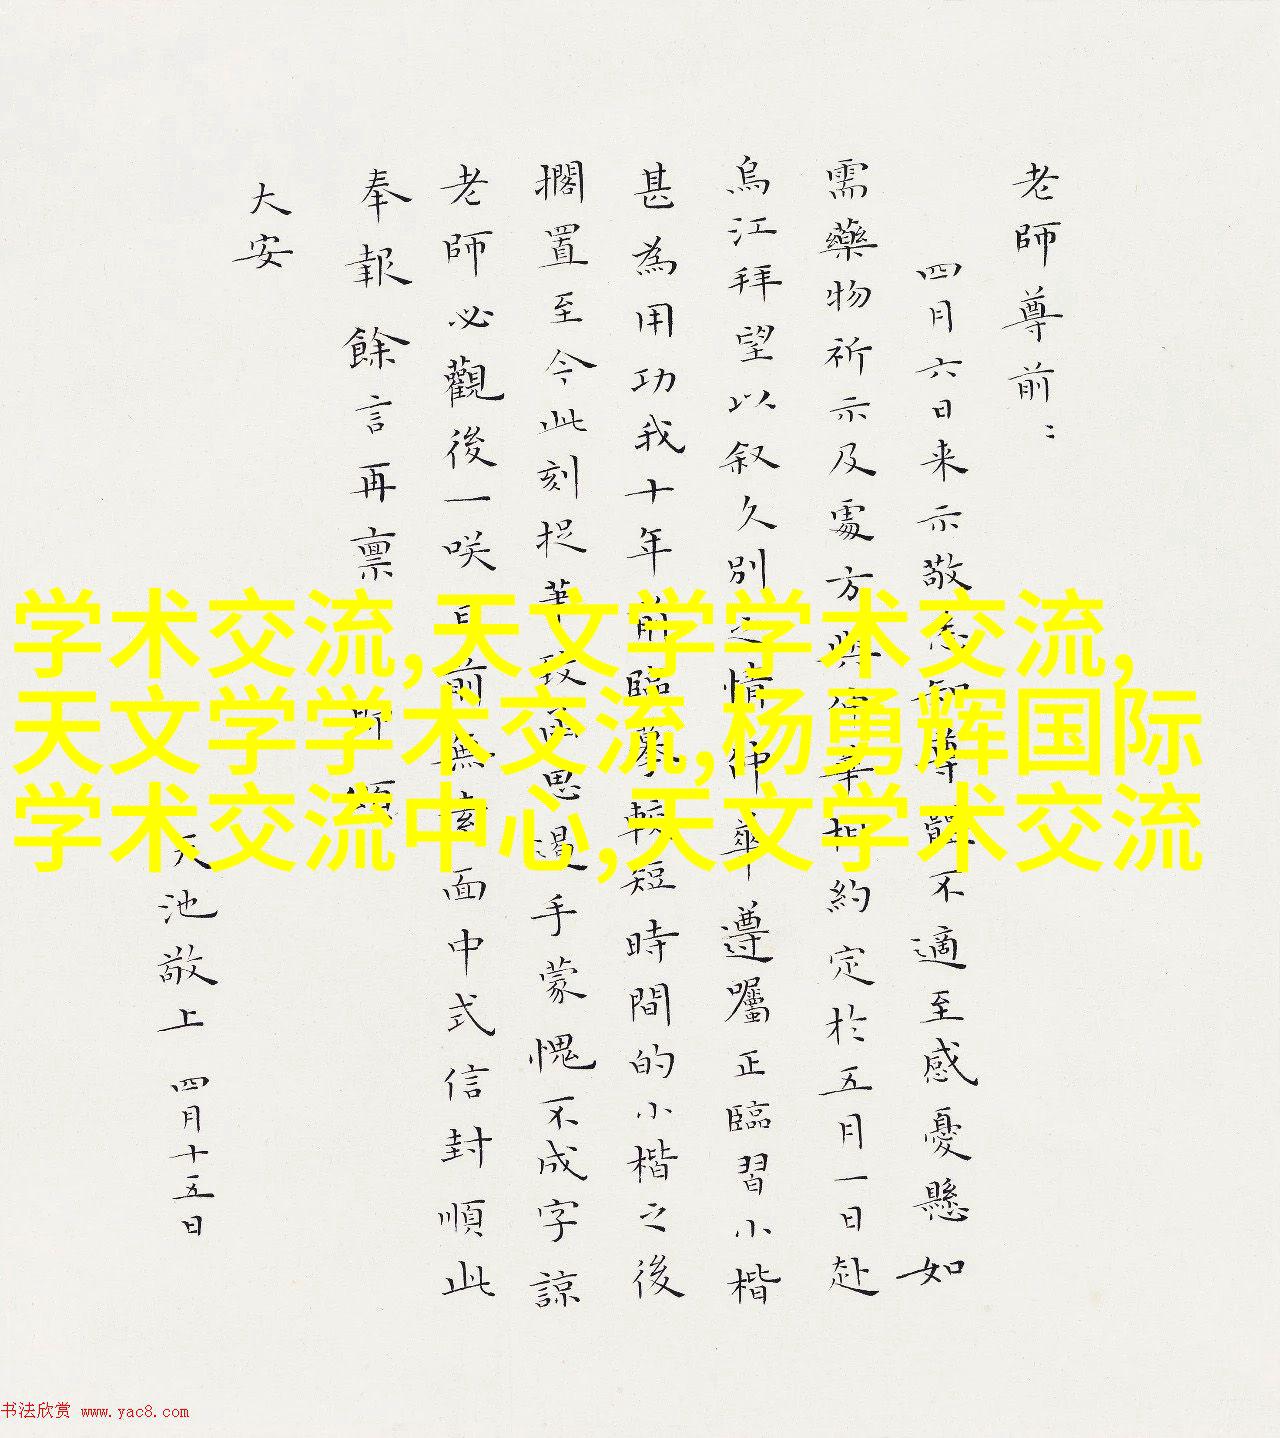 老師尊前：
四月六日来示敬悉知尊體不適至感憂懸如
需藥物祈示及處方與仲華相約定於五月一日赴
烏江拜望以叙久別之情仲華遵囑正臨習小楷
甚為用功我十年前臨摹較短時間的小楷之後
擱置至今此刻捉筆致函思遏手蒙愧不成字諒
老師必觀後一咲目前無玄面中式信封順此
奉報餘言再禀 即頌
大安
天池敬上 四月十五日
学术交流,天文学学术交流,
天文学学术交流,杨勇辉国际
学术交流中心,天文学术交流
书法欣赏 www.yac8.com